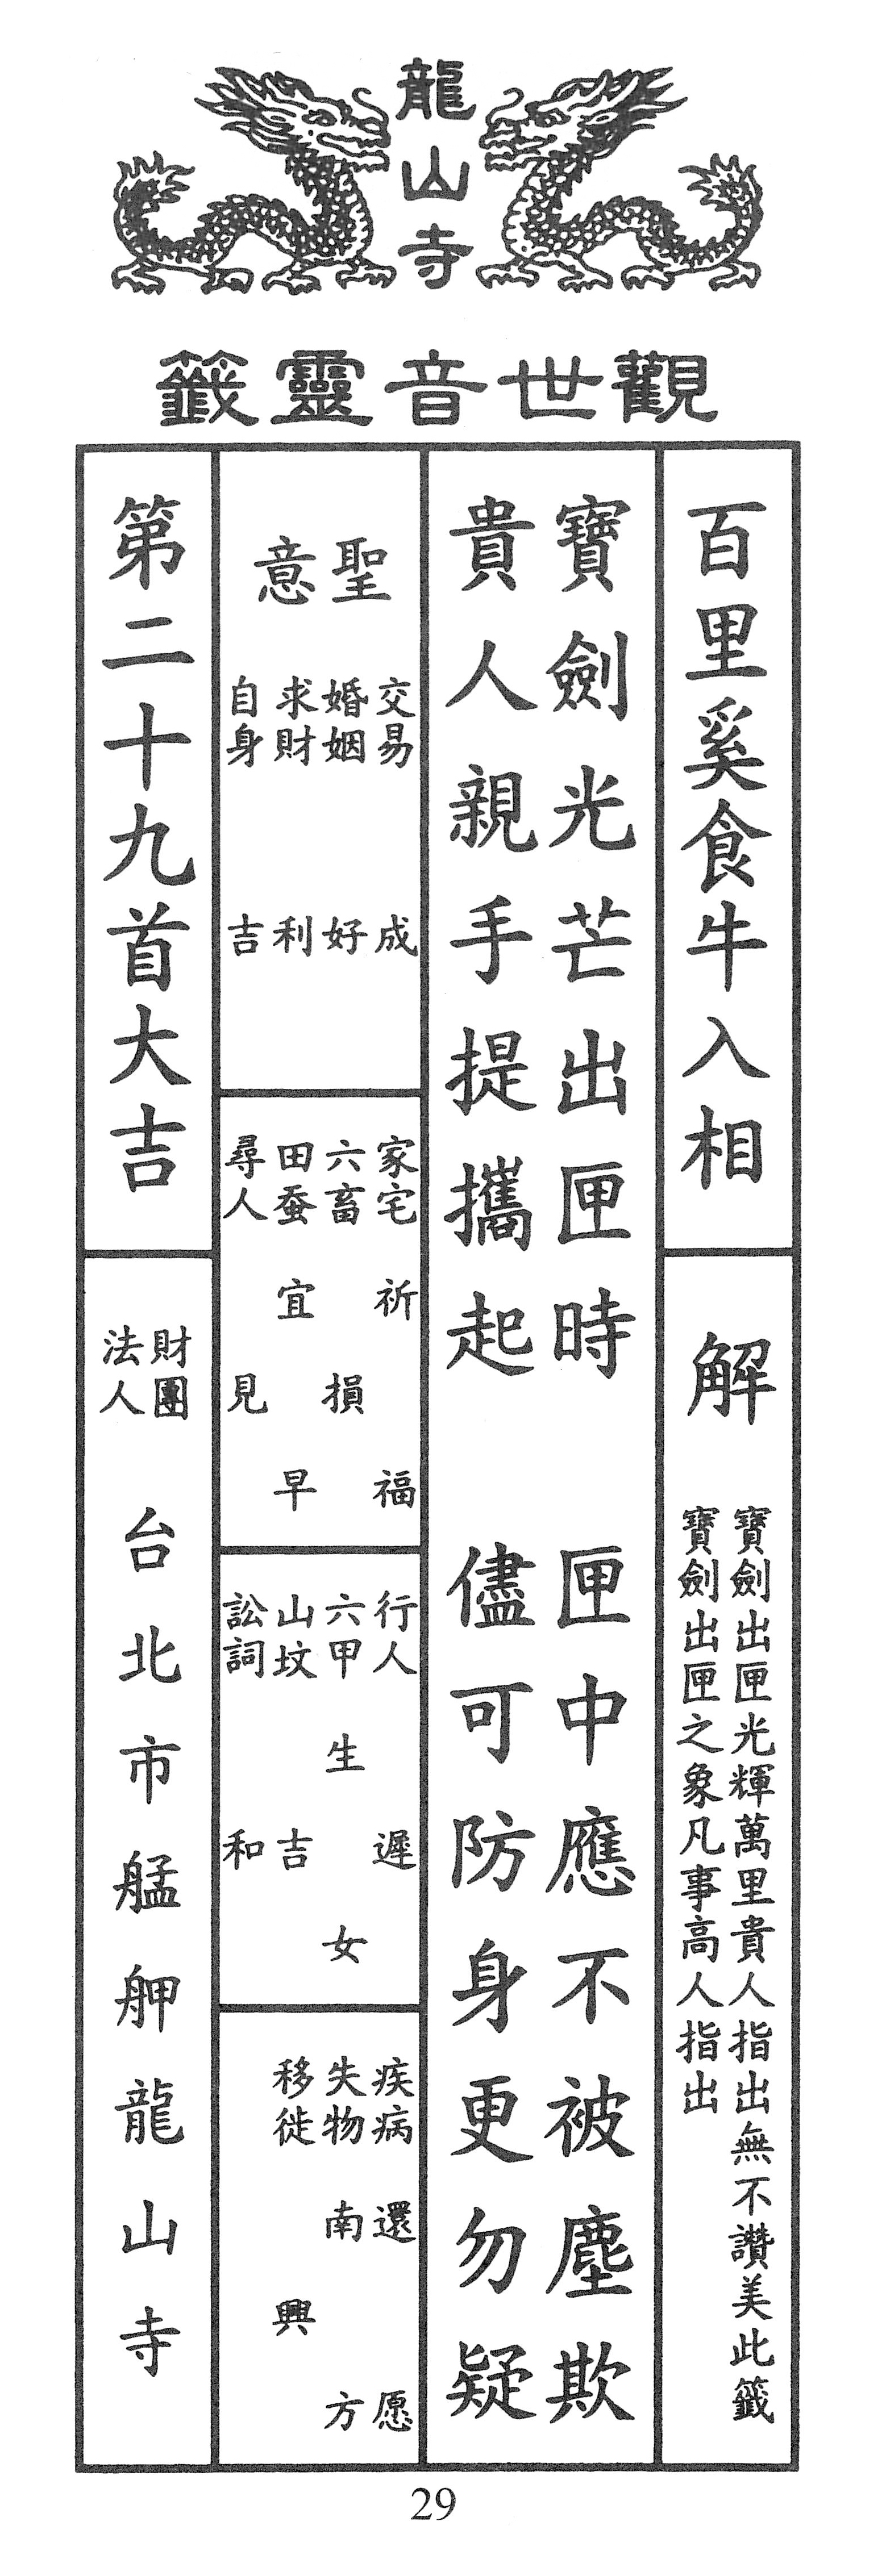 龍山寺
觀世音靈籤
百里奚食牛入相
解
寶劍出匣光輝萬里貴人指出無不讚美此籤
寶劍出匣之象凡事高人指出
寶劍光芒出匣時
匣中應不被塵欺
貴人親手提攜起
儘可防身更勿疑
聖意
交易成
婚姻好
求財利
自身吉
家宅祈福
六畜損
田蚕宜早
尋人見
行人遲
六甲生女
山坟吉
訟詞和
疾病還愿
失物南方
移徙興
第二十九首大吉
財團法人
台北市艋舺龍山寺
29